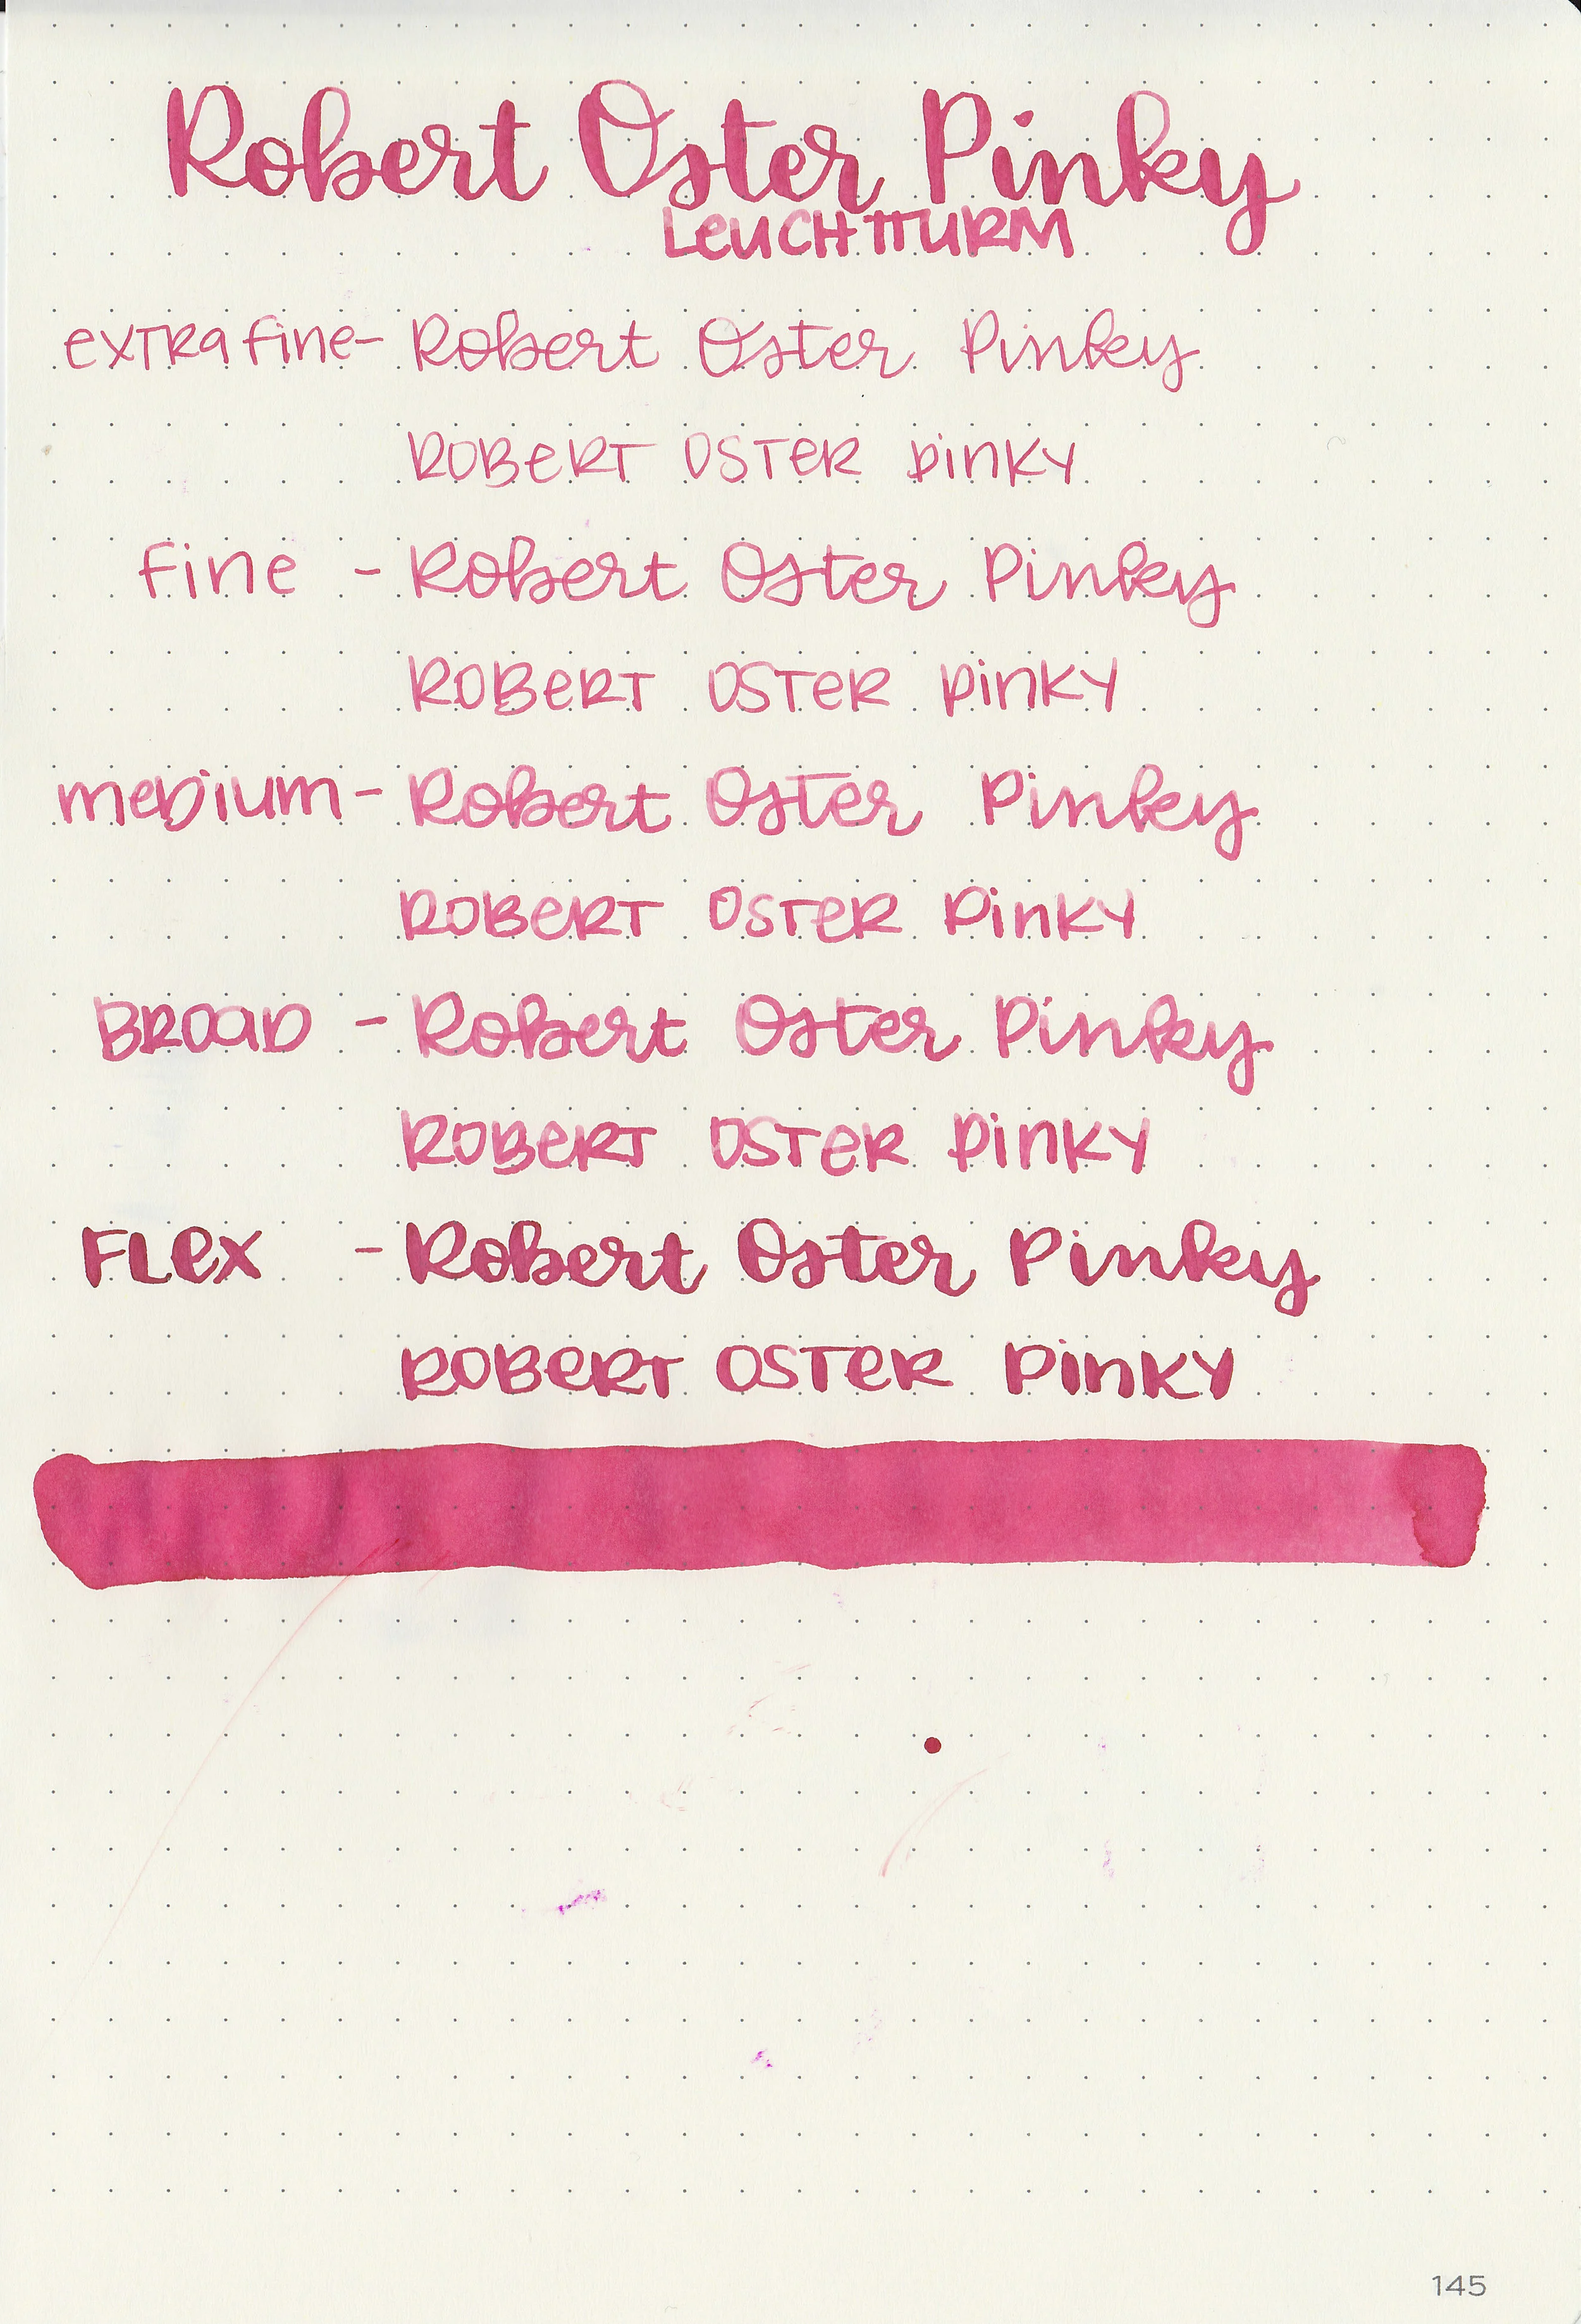 Robert Oster Pinky
LeUCHTTURM
exTRa fine- Robert Oster Pinky
ROBeRT OSTeR pinKy
fine - Robert Oster Pinky
ROBeRT OSTeR pinKy
meDium- Robert Oster Pinky
ROBeRT OSTeR pinKy
BROaD - Robert Oster Pinky
ROBeRT OSTeR pinKy
FLex - Robert Oster Pinky
ROBeRT OSTeR pinKy
145